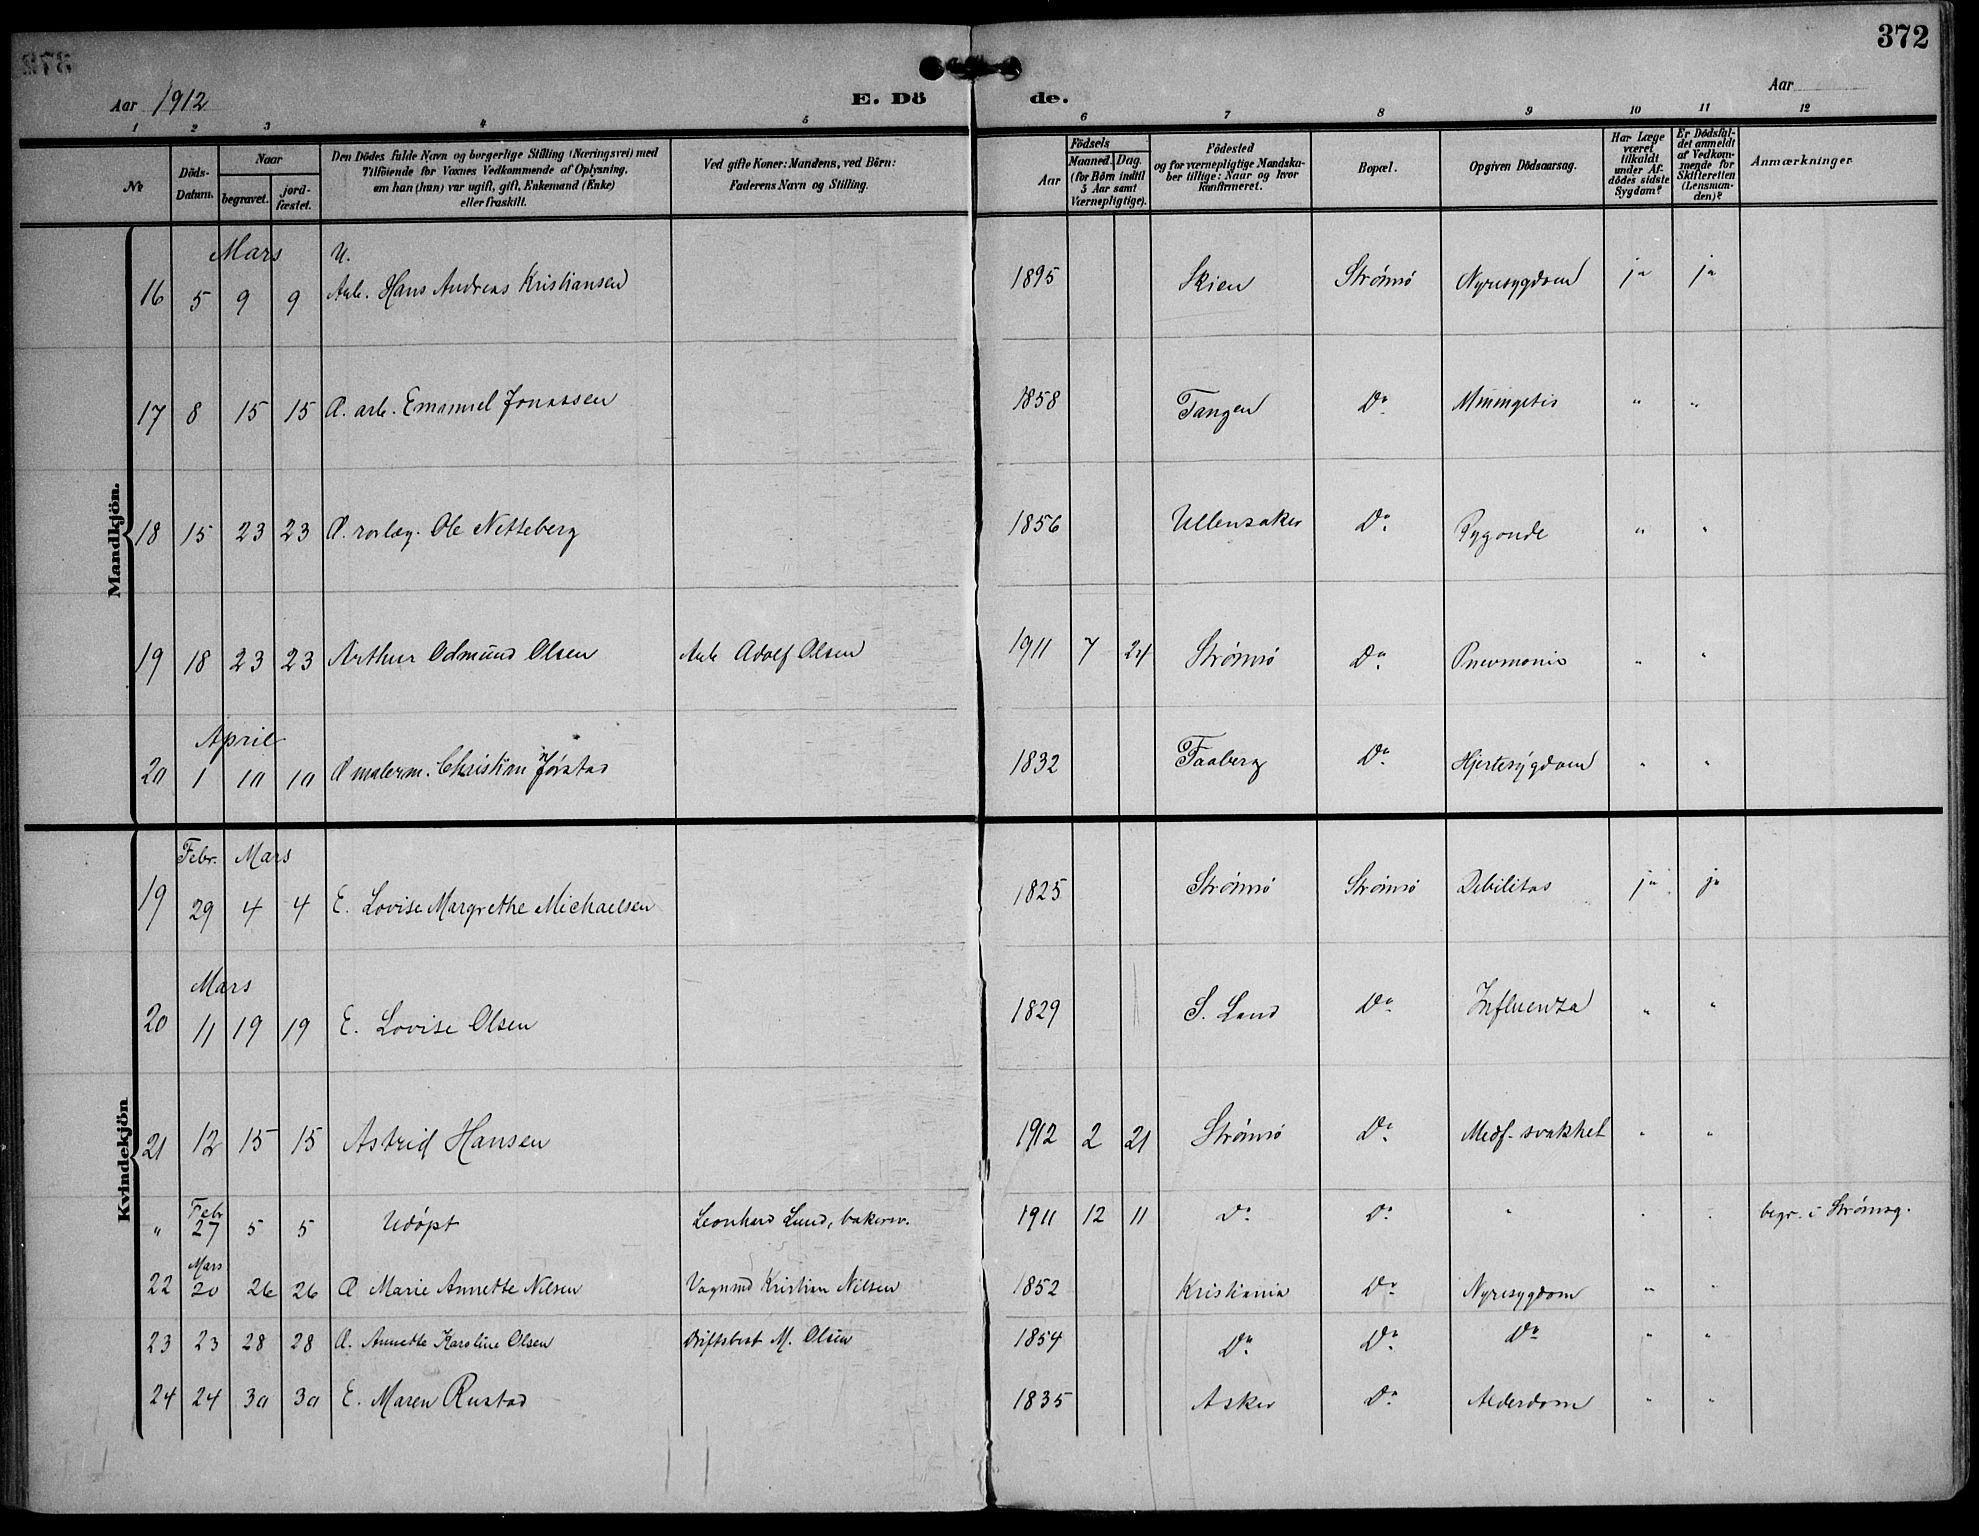 372
Aar 1912
E. Döde.
Aar
1 2 3 4 5 6 7 8 9 10 11 12
№
Döds-Datum.
Naar
begravet.
jordfæstet.
Den Dödes fulde Navn og borgerlige Stilling (Næringsvei) med
Tilföiende for Voxnes Vedkommende af Oplysning,
om han (hun) var ugift, gift, Enkemand (Enke)
eller fraskilt.
Ved gifte Koner: Mandens, ved Börn:
Faderens Navn og Stilling.
Aar
Födsels
Maaned. Dag.
(for Börn indtil
5 Aar samt
Værnepligtige).
Födested
og for værnepligtige Mandska-
ber tillige: Naar og hvor
konfirmeret.
Bopæl.
Opgiven Dödsaarsag.
Har Læge
været
tilkaldt
under Af-
dödes sidste
Sygdom?
Er Dödsfal-
det anmeldt
af Vedkom-
mende for
Skifteretten
(Lensman-
den)?
Anmærkninger
Mandkjön.
Mars U.
16 5 9 9 Arb. Hans Andreas Kristiansen 1895 Skien Strømsø Nyresygdom ja ja
17 8 15 15 G. arb. Emanuel Jonassen 1858 Tangen Do Miningitis " "
18 15 23 23 G. Ole Netteberg 1856 Ullensaker Do " "
19 18 23 23 Arthur Odmund Olsen Arb Adolf Olsen 1911 7 24 Strømsø Do Pnevmoni " "
April
20 1 10 10 G malerm. Christian Jørstad 1832 Faaberg Do Hjertesygdom " "
Kvindekjön
Febr. Mars
19 29 4 4 E. Lovise Margrethe Michaelsen 1825 Strømsø Strømsø Debilitas ja ja
Mars
20 11 19 19 E. Lovise Olsen 1829 S. Land Do Influenza " "
21 12 15 15 Astrid Hansen 1912 2 21 Strømsø Do Medf. svakhet " "
Febr
" 27 5 5 Udøpt Leonhard Lund, bakersv. 1911 12 11 Do Do " " " begr. i Strømsg.
Mars
22 20 26 26 G Marie Annette Nilsen Vognmd Kristian Nilsen 1852 Kristiania Do Nyresygdom " "
23 23 28 28 G. Annette Karoline Olsen Driftsbest M. Olsen 1854 Do Do Do " "
24 24 30 30 E. Maren Rustad 1835 Asker Do Alderdom " "